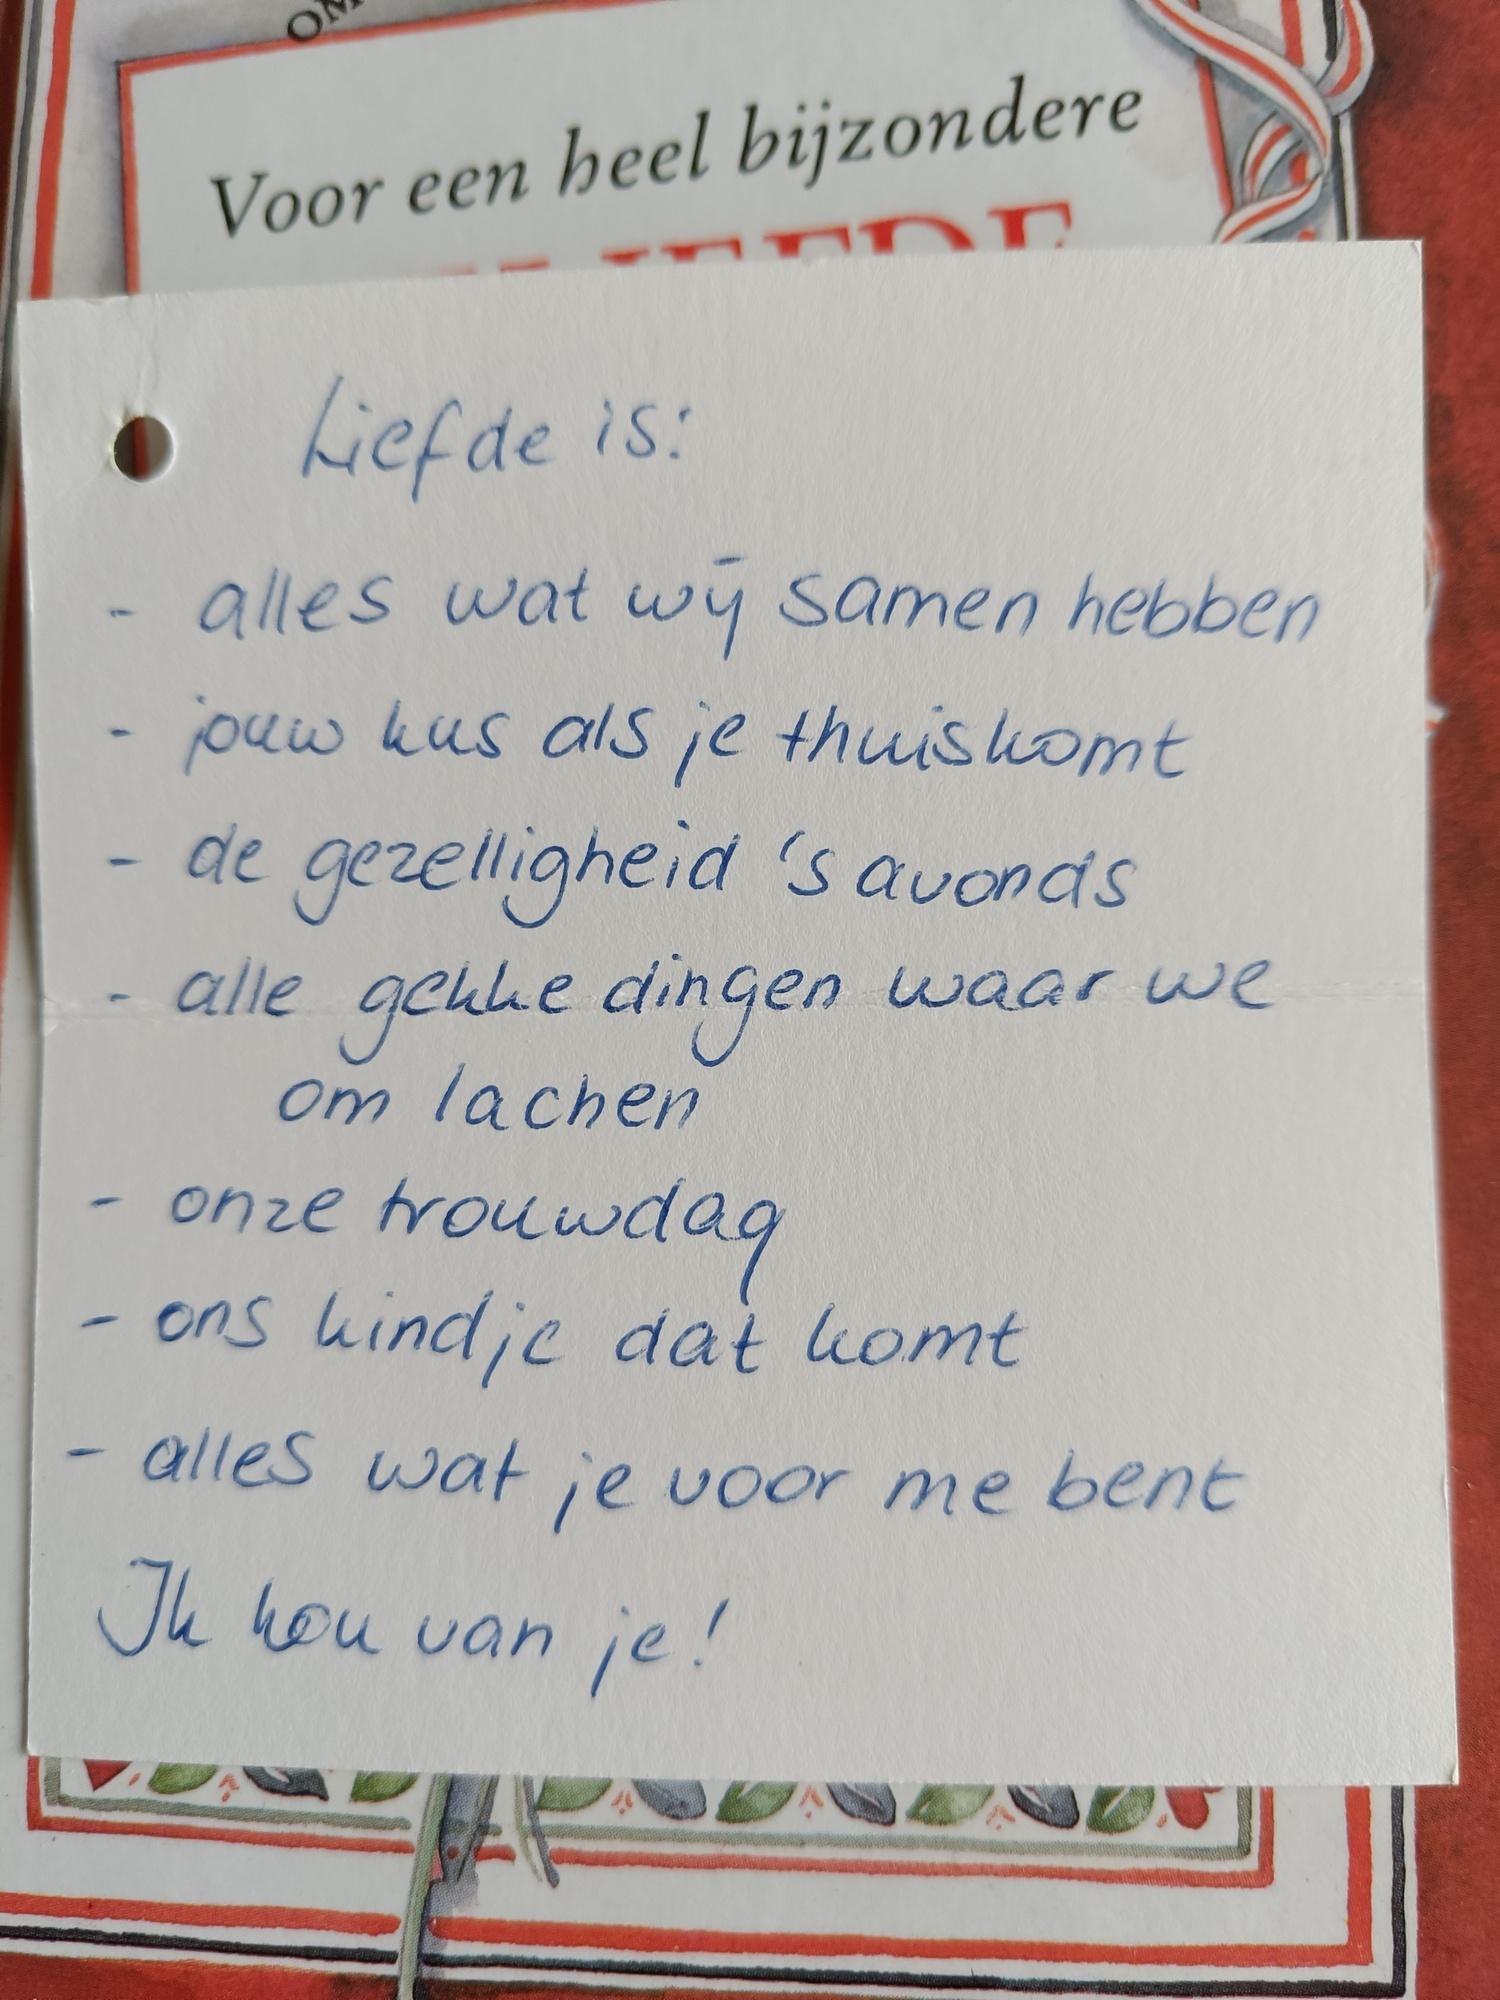 OM
Voor een heel bijzondere
Liefde is:
- alles wat wij samen hebben
- jouw kus als je thuiskomt
- de gezelligheid 's avonds
- alle gekke dingen waar we
om lachen
- onze trouwdag
- ons kindje dat komt
- alles wat je voor me bent
Ik hou van je!